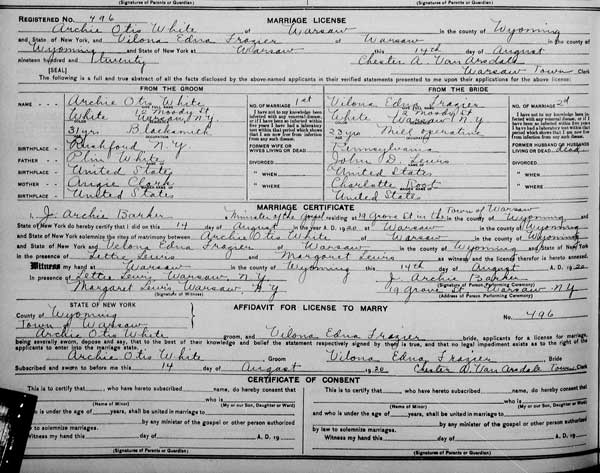 (Signatures of Parents or Guardian) (Signatures of Parents or Guardian)
REGISTERED NO. 496 MARRIAGE LICENSE
Archie Otis White of Warsaw in the county of Wyoming
and State of New York and Vilona Edna Frazier of Warsaw in the county of
Wyoming and State of New York at Warsaw this 14th day of August
nineteen hundred and twenty Chester A. Van Arsdale
[SEAL] Warsaw Town Clerk
The following is a full and true abstract of all the facts disclosed by the above-named applicants in their verified statements presented to me upon their applications for the above license:
FROM THE GROOM FROM THE BRIDE
NAME Archie Otis White NO. OF MARRIAGE 1st Vilona Edna Frazier NO. OF MARRIAGE 2nd
White 12 Moody St Warsaw N.Y. White 12 Moody St Warsaw N.Y.
I have not to my knowledge been infected with any venereal disease, or if I have been so infected within five years I have had a laboratory test within that period which shows that I am now free from infection from any such disease.
I have not to my knowledge been infected with any venereal disease, or if I have been so infected within five years I have had a laboratory test within that period which shows that I am now free from infection from any such disease.
31 yrs Blacksmith 23 yrs Mill operative
BIRTHPLACE Rushford N.Y. FORMER WIFE OR WIVES LIVING OR DEAD Pennsylvania FORMER HUSBAND OR HUSBANDS LIVING OR DEAD dead
FATHER White DIVORCED John D. Lewis DIVORCED
BIRTHPLACE United States " WHEN United States " WHEN
MOTHER Angie " WHERE Charlotte Root " WHERE
BIRTHPLACE United States United States
MARRIAGE CERTIFICATE
I, J. Archie Barker Minister of the Gospel residing at 19 Grove St in the Town of Warsaw in the county of Wyoming and
State of New York do hereby certify that I did on this 14 day of August in the year A. D. 1920 at Warsaw in the county of Wyoming
and State of New York solemnize the rites of matrimony between Archie Otis White of Warsaw in the county of Wyoming
and State of New York and Velona Edna Frazier of Warsaw in the county of Wyoming and State of New York
in the presence of Lettie Lewis and Margaret Lewis as witness and the license therefor is hereto annexed.
Witness my hand at Warsaw in the county of Wyoming this 14th day of August A. D. 1920
In presence of Lettie Lewis Warsaw N.Y. J. Archie Barker
(Signature of Person Performing Ceremony)
Margaret Lewis Warsaw, N.Y. 19 Grove St Warsaw N.Y.
(Signature of Witness) (Address of Person Performing Ceremony)
STATE OF NEW YORK AFFIDAVIT FOR LICENSE TO MARRY No. 496
County of Wyoming
Town of Warsaw
Archie Otis White groom, and Vilona Edna Frazier bride, applicants for a license for marriage,
being severally sworn, depose and say, that to the best of their knowledge and belief the statement respectively signed by them is true, and that no legal impediment exists as to the right of the
applicants to enter into the marriage state.
Archie Otis White Groom Vilona Edna Frazier Bride
Subscribed and sworn to before me this 14 day of August 1920 Chester A. Van Arsdale Town Clerk
CERTIFICATE OF CONSENT
This is to certify that who have hereto subscribed name, do hereby consent that This is to certify that who have hereto subscribed name, do hereby consent that
who is who is
(Name of Minor) (My or our Son, Daughter or Ward) (Name of Minor) (My or our Son, Daughter or Ward)
who is under the age of years, shall be united in marriage to and who is under the age of years, shall be united in marriage to
by any minister of the gospel or other person authorized by any minister of the gospel or other person authorized
by law to solemnize marriages. by law to solemnize marriages.
Witness my hand this day of A. D. 19 Witness my hand this day of A. D. 19
(Signatures of Parents or Guardian) (Signatures of Parents or Guardian)